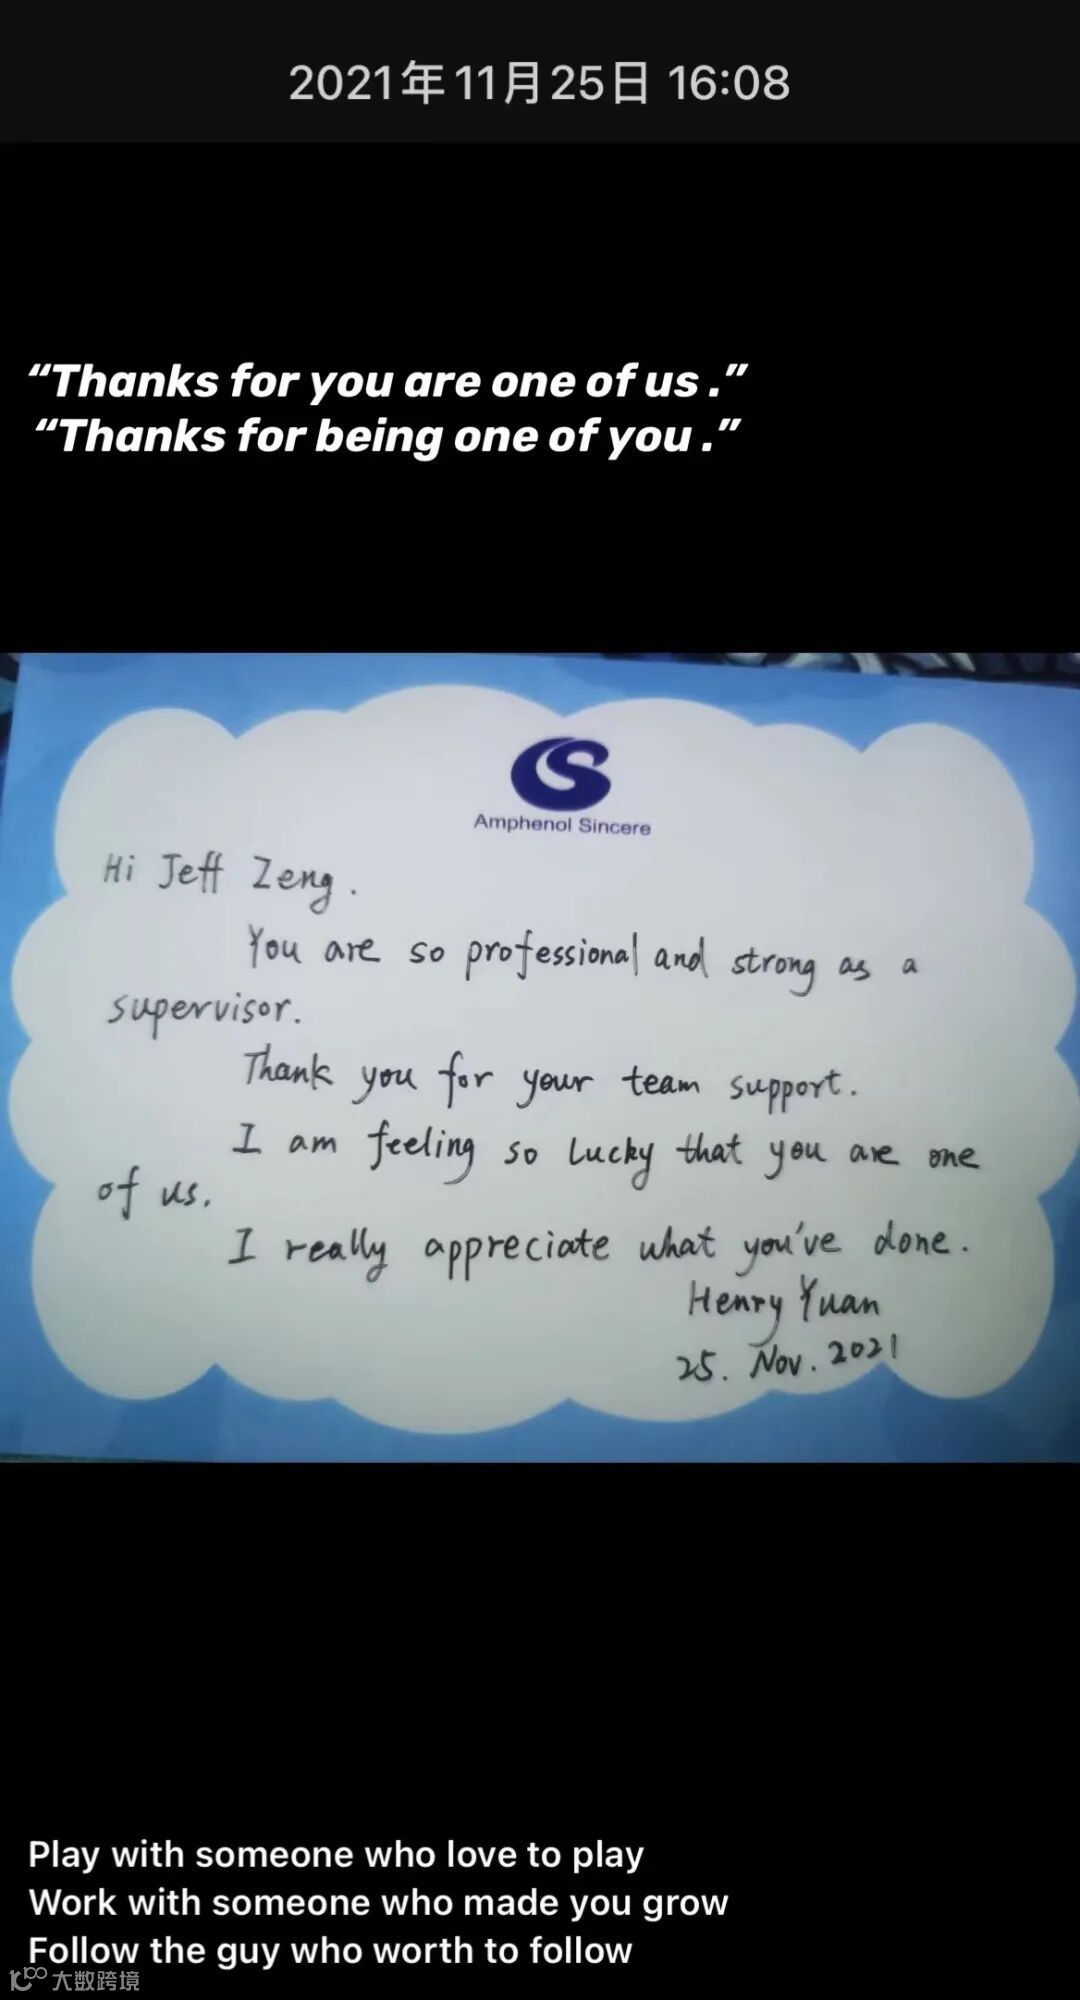 2021年11月25日 16:08
“Thanks for you are one of us .”
“Thanks for being one of you .”
Amphenol Sincere
Hi Jeff Zeng.
You are so professional and strong as a
supervisor.
Thank you for your team support.
I am feeling so lucky that you are one
of us.
I really appreciate what you've done.
Henry Yuan
25. Nov. 2021
Play with someone who love to play
Work with someone who made you grow
Follow the guy who worth to follow
大数跨境